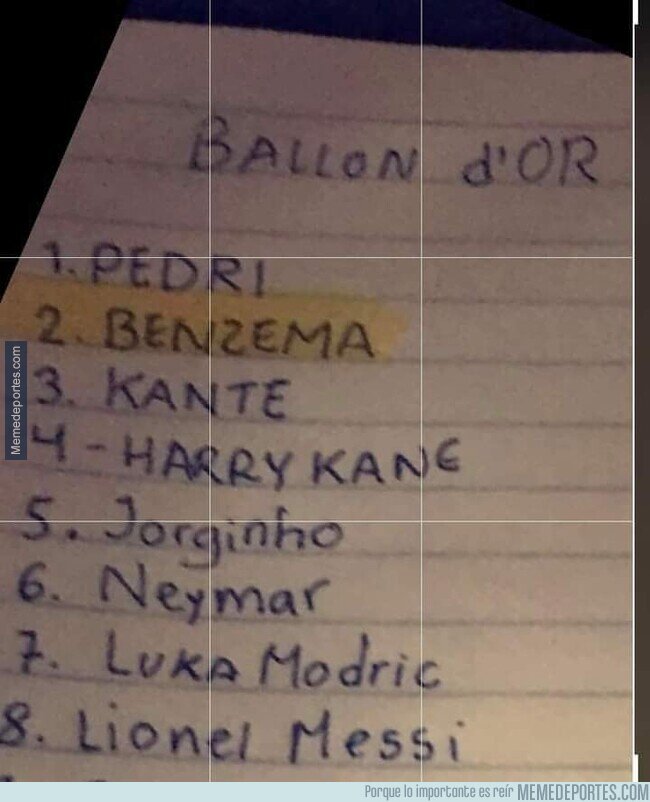 BALLON d'OR
1. PEDRI
2. BENZEMA
3. KANTE
4 - HARRY KANE
5. Jorginho
6. Neymar
7. LUKA Modric
8. Lionel Messi
Memedeportes.com
Porque lo importante es reír MEMEDEPORTES.COM